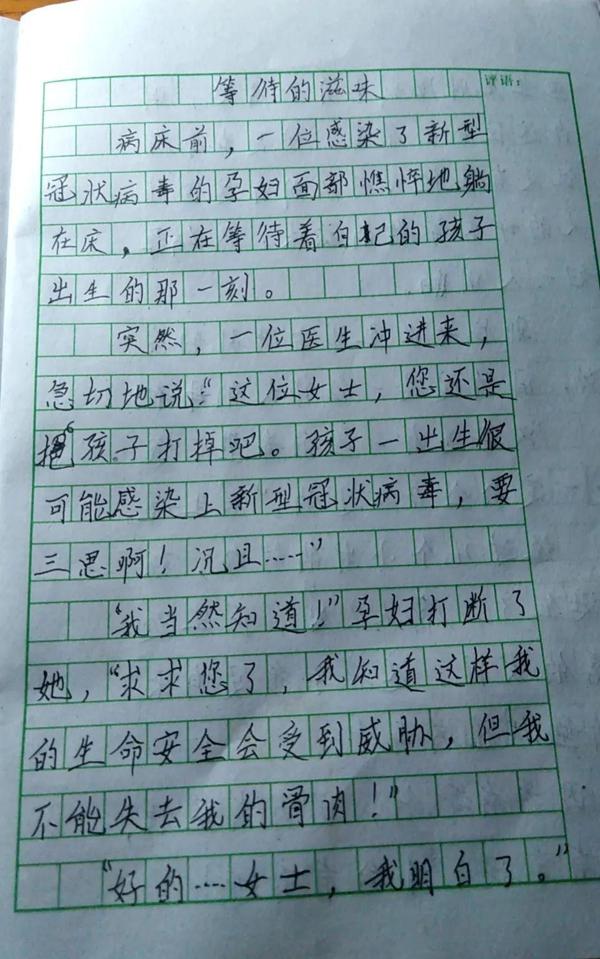 等待的滋味
评语：
病床前，一位感染了新型
冠状病毒的孕妇面部憔悴地躺
在床，正在等待着自己的孩子
出生的那一刻。
突然，一位医生冲进来，
急切地说：“这位女士，您还是
把孩子打掉吧。孩子一出生很
可能感染上新型冠状病毒，要
三思啊！况且……”
“我当然知道！”孕妇打断了
她，“求求您了，我知道这样我
的生命安全会受到威胁，但我
不能失去我的骨肉！”
“好的……女士，我明白了。”